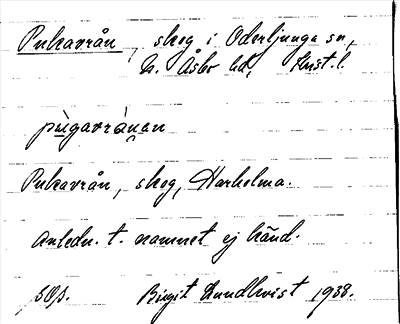 Pukavrån, skog i Oderljunga sn,
N. Åsbo hd, Krist. l.
pùgavrànan
Pukavrån, skog, Harholma.
Anledn. t. namnet ej känd.
SOp. Birgit Lundkvist 1938.